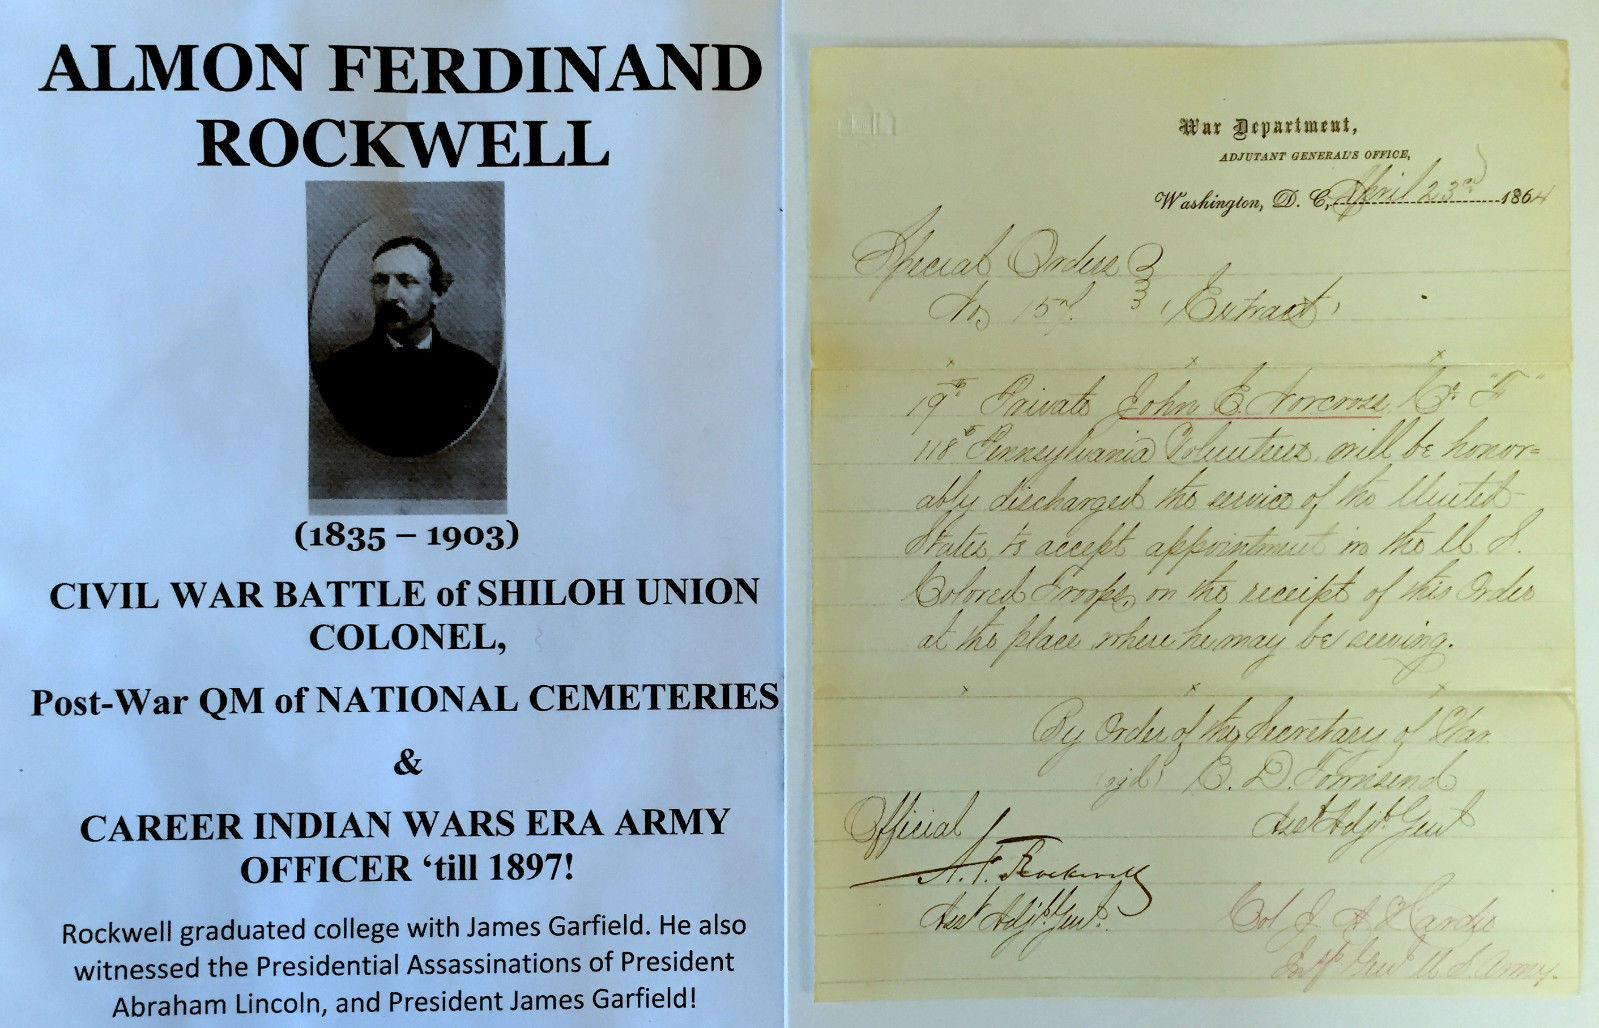 ALMON FERDINAND
ROCKWELL
(1835 – 1903)
CIVIL WAR BATTLE of SHILOH UNION
COLONEL,
Post-War QM of NATIONAL CEMETERIES
&
CAREER INDIAN WARS ERA ARMY
OFFICER ‘till 1897!
Rockwell graduated college with James Garfield. He also
witnessed the Presidential Assassinations of President
Abraham Lincoln, and President James Garfield!
War Department,
ADJUTANT GENERAL'S OFFICE,
Washington, D. C., April 23rd 1864
Special Orders
No 157. (Extract)
x x x
19th Private John E. Norcross, Co. "F"
118th Pennsylvania Volunteers, will be honor=
ably discharged the service of the United
States, to accept appointment in the U. S.
Colored Troops, on the receipt of this Order
at the place where he may be serving.
x x x
By Order of the Secretary of War
(sgd) E. D. Townsend
Asst Adjt. Genl
Official
A. F. Rockwell
Asst Adjt. Genl.
Col J. A. Hardie
Insp Genl U. S. Army.